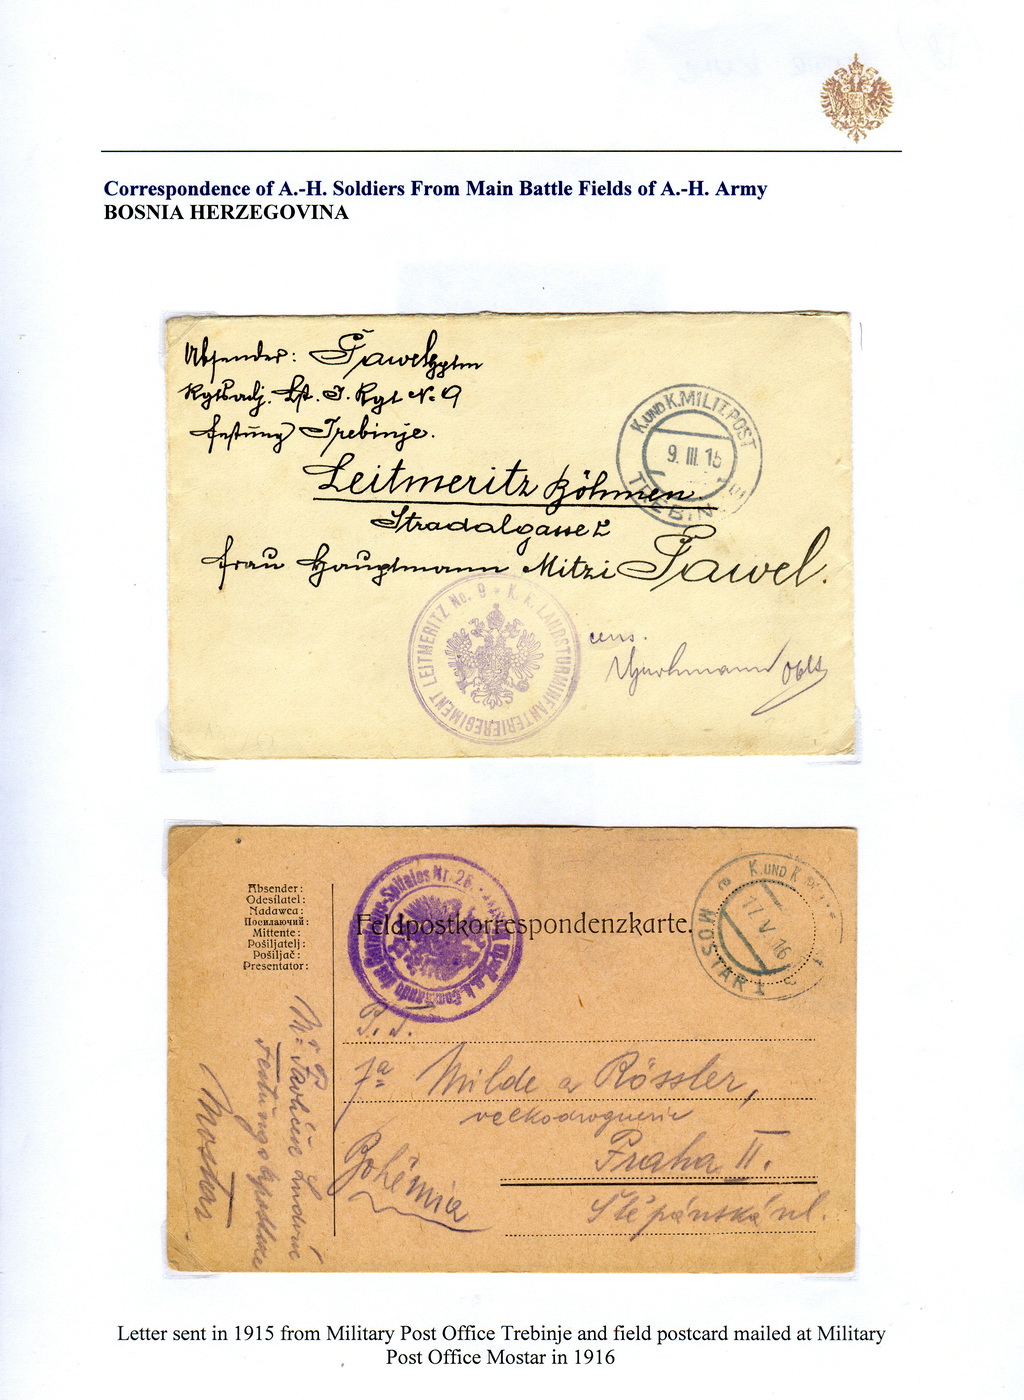 Correspondence of A.-H. Soldiers From Main Battle Fields of A.-H. Army
BOSNIA HERZEGOVINA
Absender: Pawel Hptm
Rgtsadj. Lst. I. Rgt No 9
Festung Trebinje.
Leitmeritz Böhmen.
Stradalgasse 2
Frau Hauptmann Mitzi Pawel.
K. UND K. MILIT. POST
9. III. 15
TREBIN
K. K. LANDSTURMINFANTERIEREGIMENT LEITMERITZ No. 9
cens.
Oblt
Absender:
Odesílatel:
Nadawca:
Посилаючий:
Mittente:
Pošiljatelj:
Pošiljač:
Presentator:
Feldpostkorrespondenzkarte.
Spitales Nr. 26.
K. UND K.
17. V. 16
MOSTAR 1
P. T.
Fa Milde a Rössler,
velkodroguerie
Praha II.
Štěpánská ul.
Bohemia
Mostar
Letter sent in 1915 from Military Post Office Trebinje and field postcard mailed at Military
Post Office Mostar in 1916